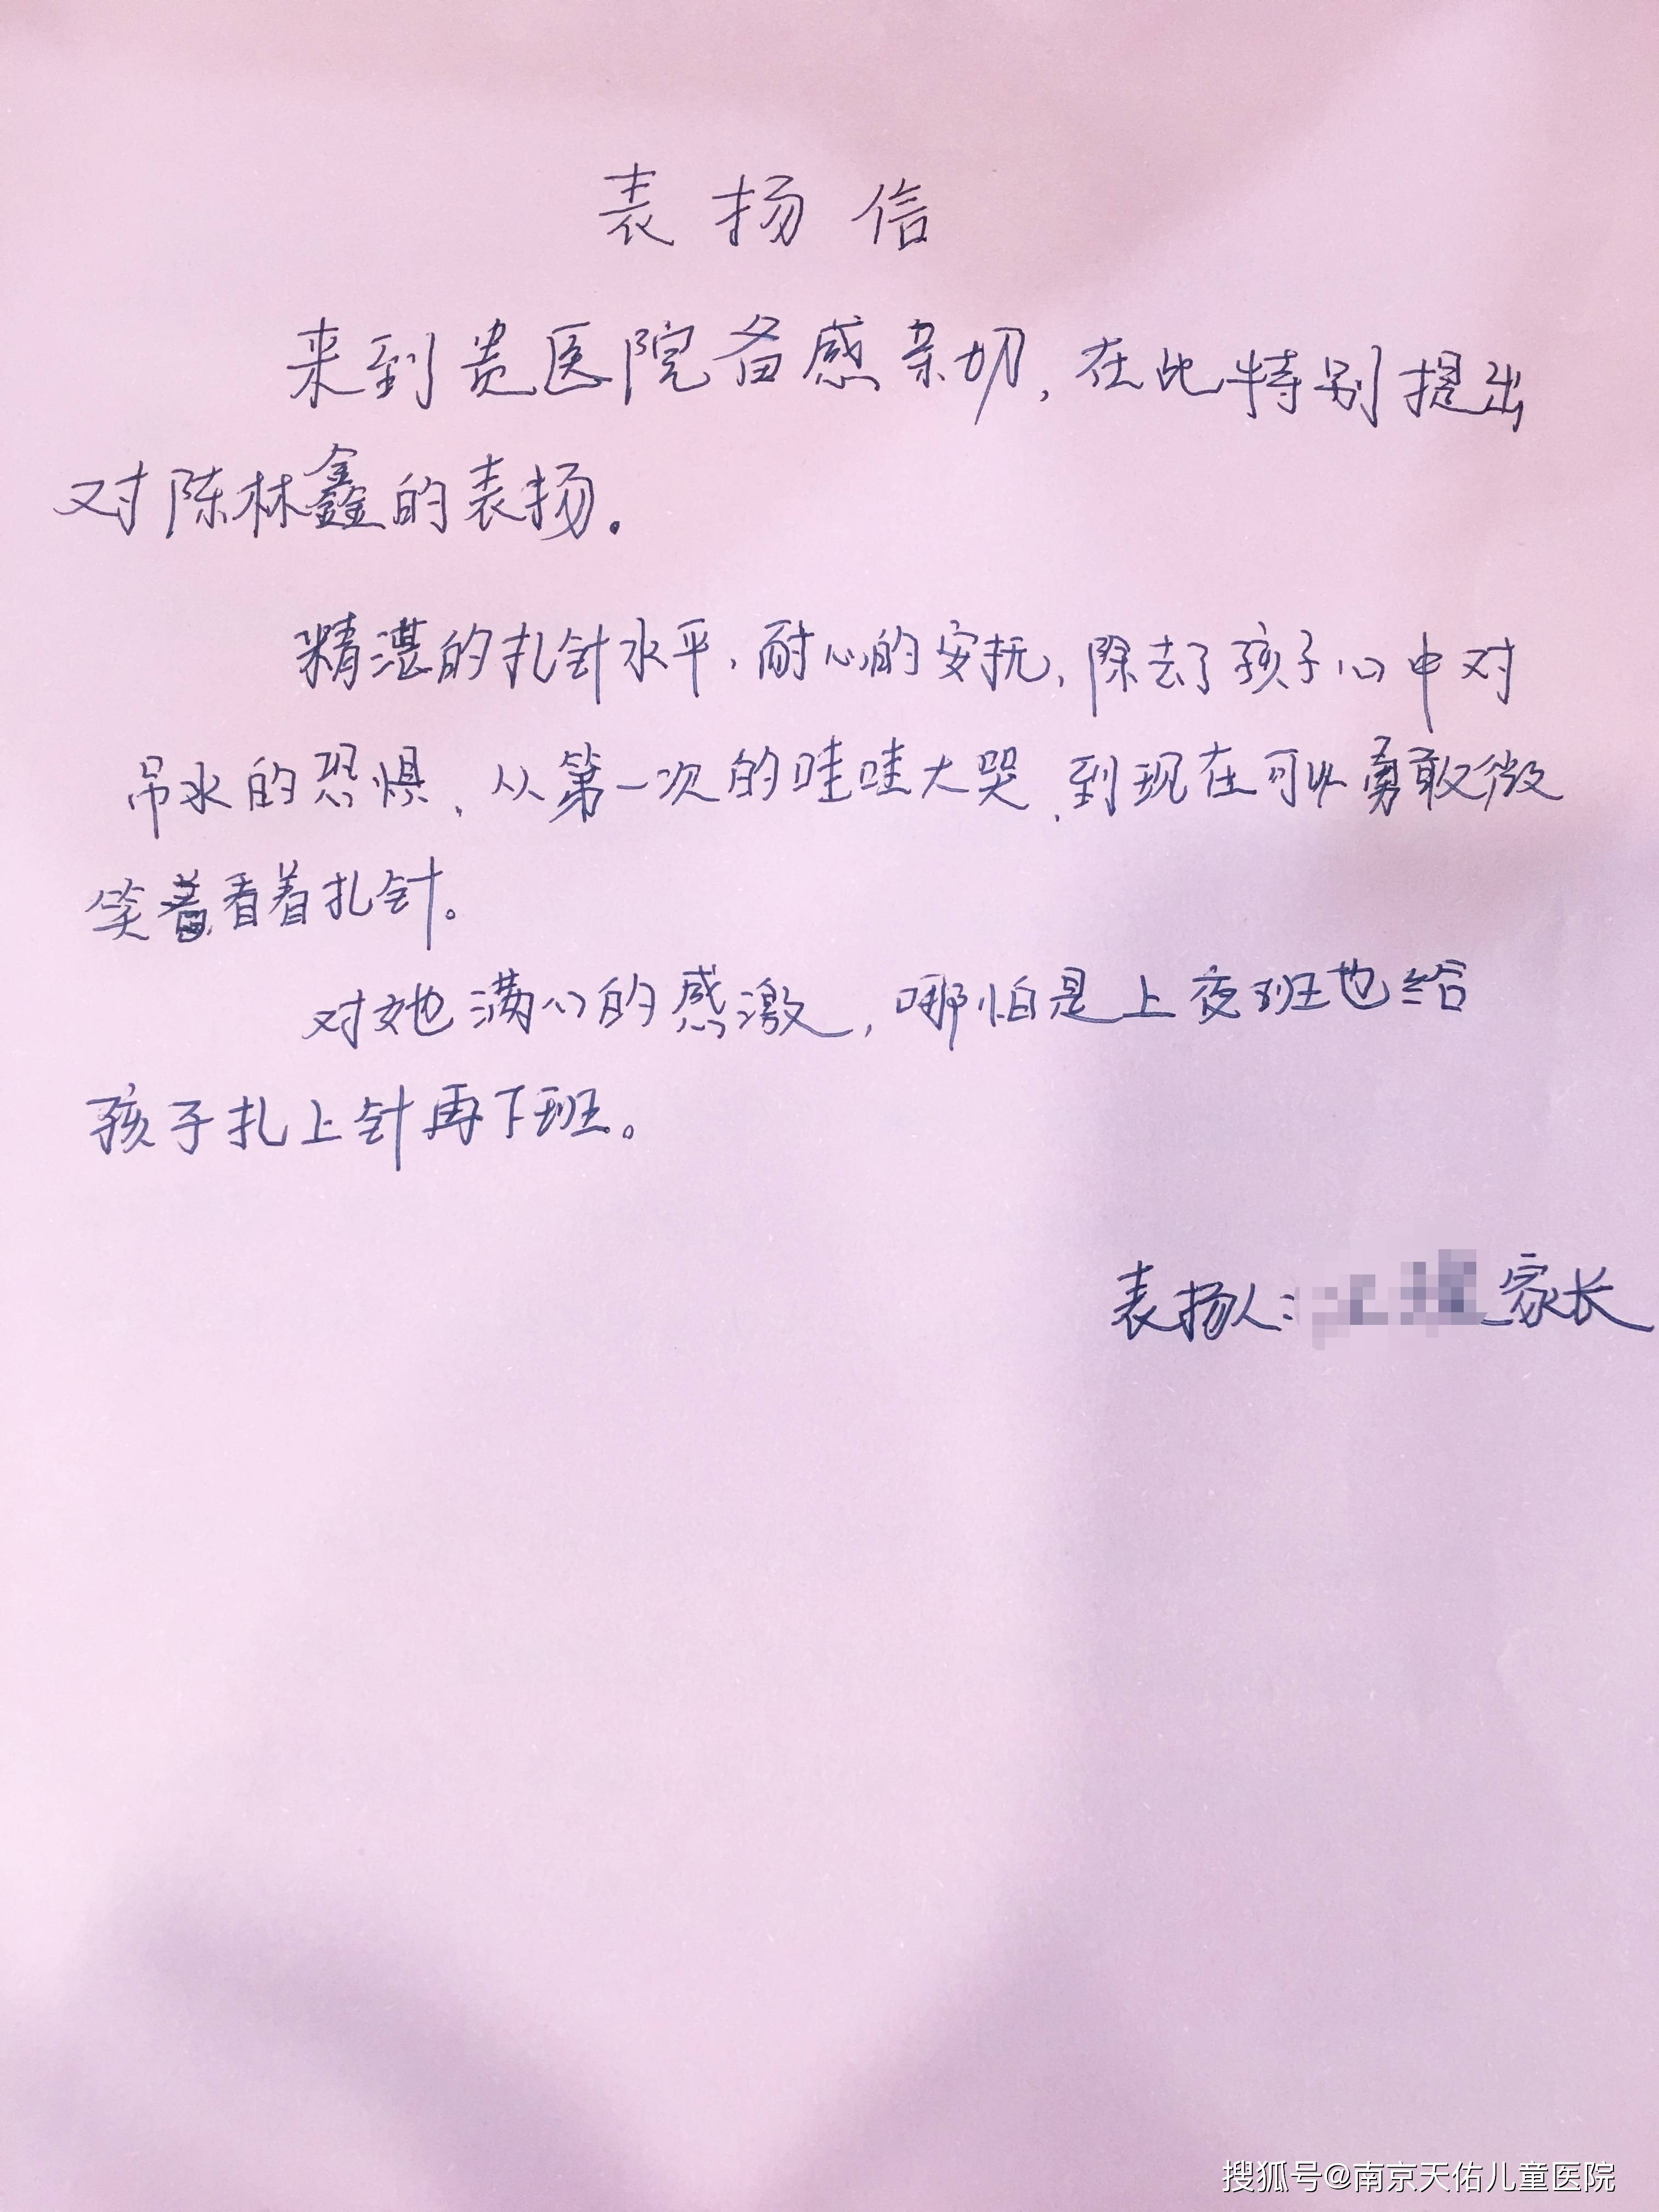 表扬信
来到贵医院备感亲切,在此特别提出
对陈林鑫的表扬。
精湛的扎针水平,耐心的安抚,除去了孩子心中对
吊水的恐惧,从第一次的哇哇大哭,到现在可以勇敢微
笑着看着扎针。
对她满心的感激,哪怕是上夜班也给
孩子扎上针再下班。
表扬人:家长
搜狐号@南京天佑儿童医院